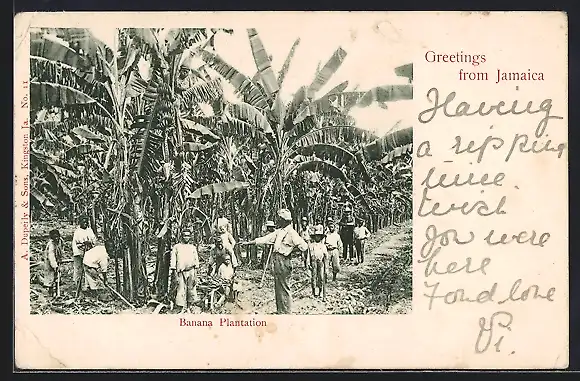 A. Duperly & Sons, Kingston Ja. No. 11
Greetings
from Jamaica
Having
a ripping
time.
Wish
you were
here
Fond love
Banana Plantation